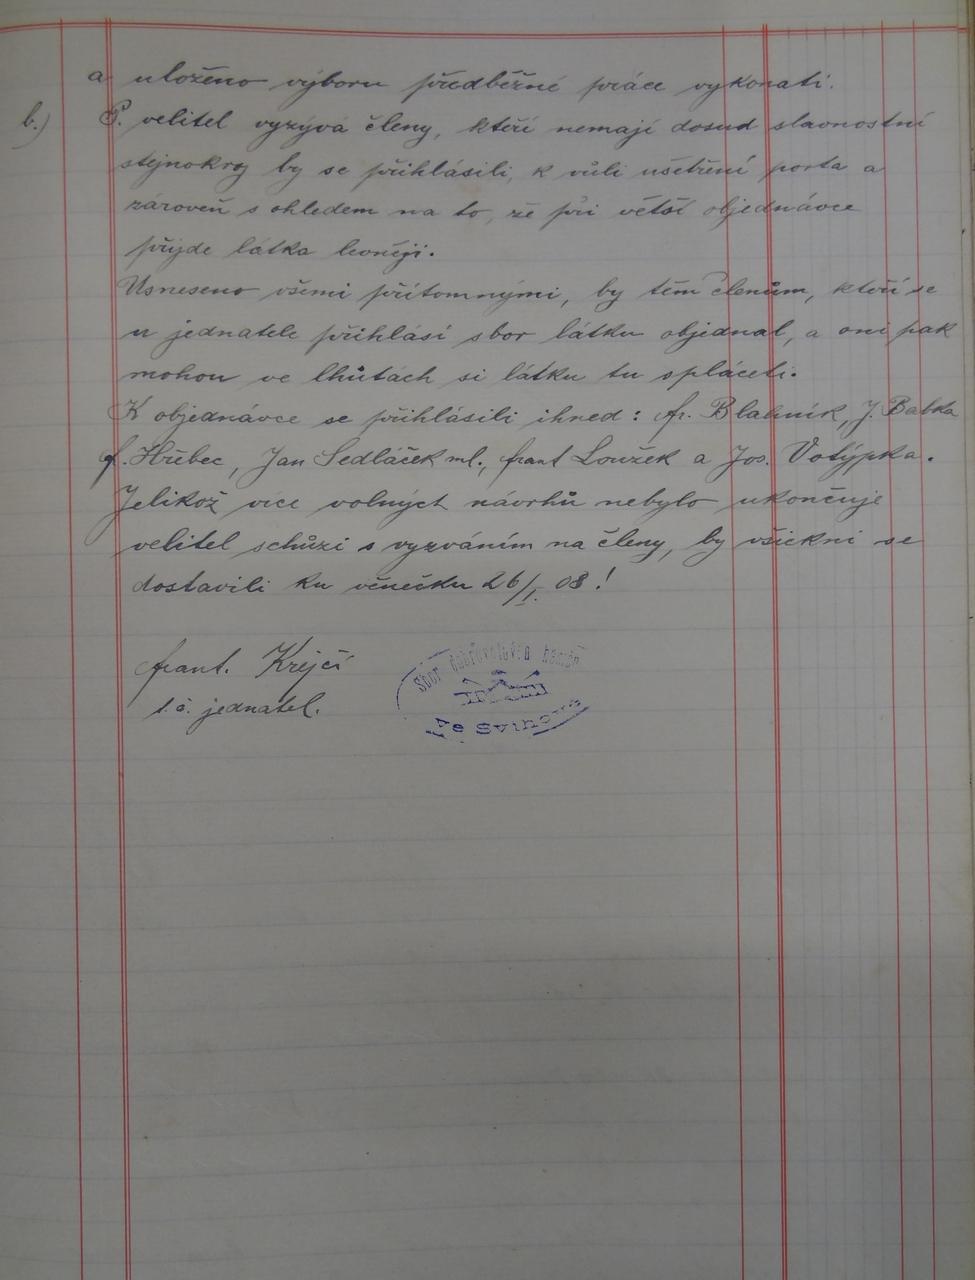 a uloženo výboru předběžné práce vykonati.
b.) P. velitel vyzývá členy, kteří nemají dosud slavnostní
stejnokroj by se přihlásili, k vůli ušetření porta a
zároveň s ohledem na to, že při větší objednávce
přijde látka levněji.
Usneseno všemi přítomnými, by těm členům, kteří se
u jednatele přihlásí sbor látku objednal, a oni pak
mohou ve lhůtách si látku tu spláceti.
K objednávce se přihlásili ihned: Fr. Blahník, J. Babka
f. Hřebec, Jan Sedláček ml., frant Loužek a Jos. Votýpka.
Jelikož více volných návrhů nebylo ukončuje
velitel schůzi s vyzváním na členy, by všickni se
dostavili ku věnečku 26/I. 08!
frant. Krejčí
t. č. jednatel.
Sbor dobrovolných hasičů
ve Svinově